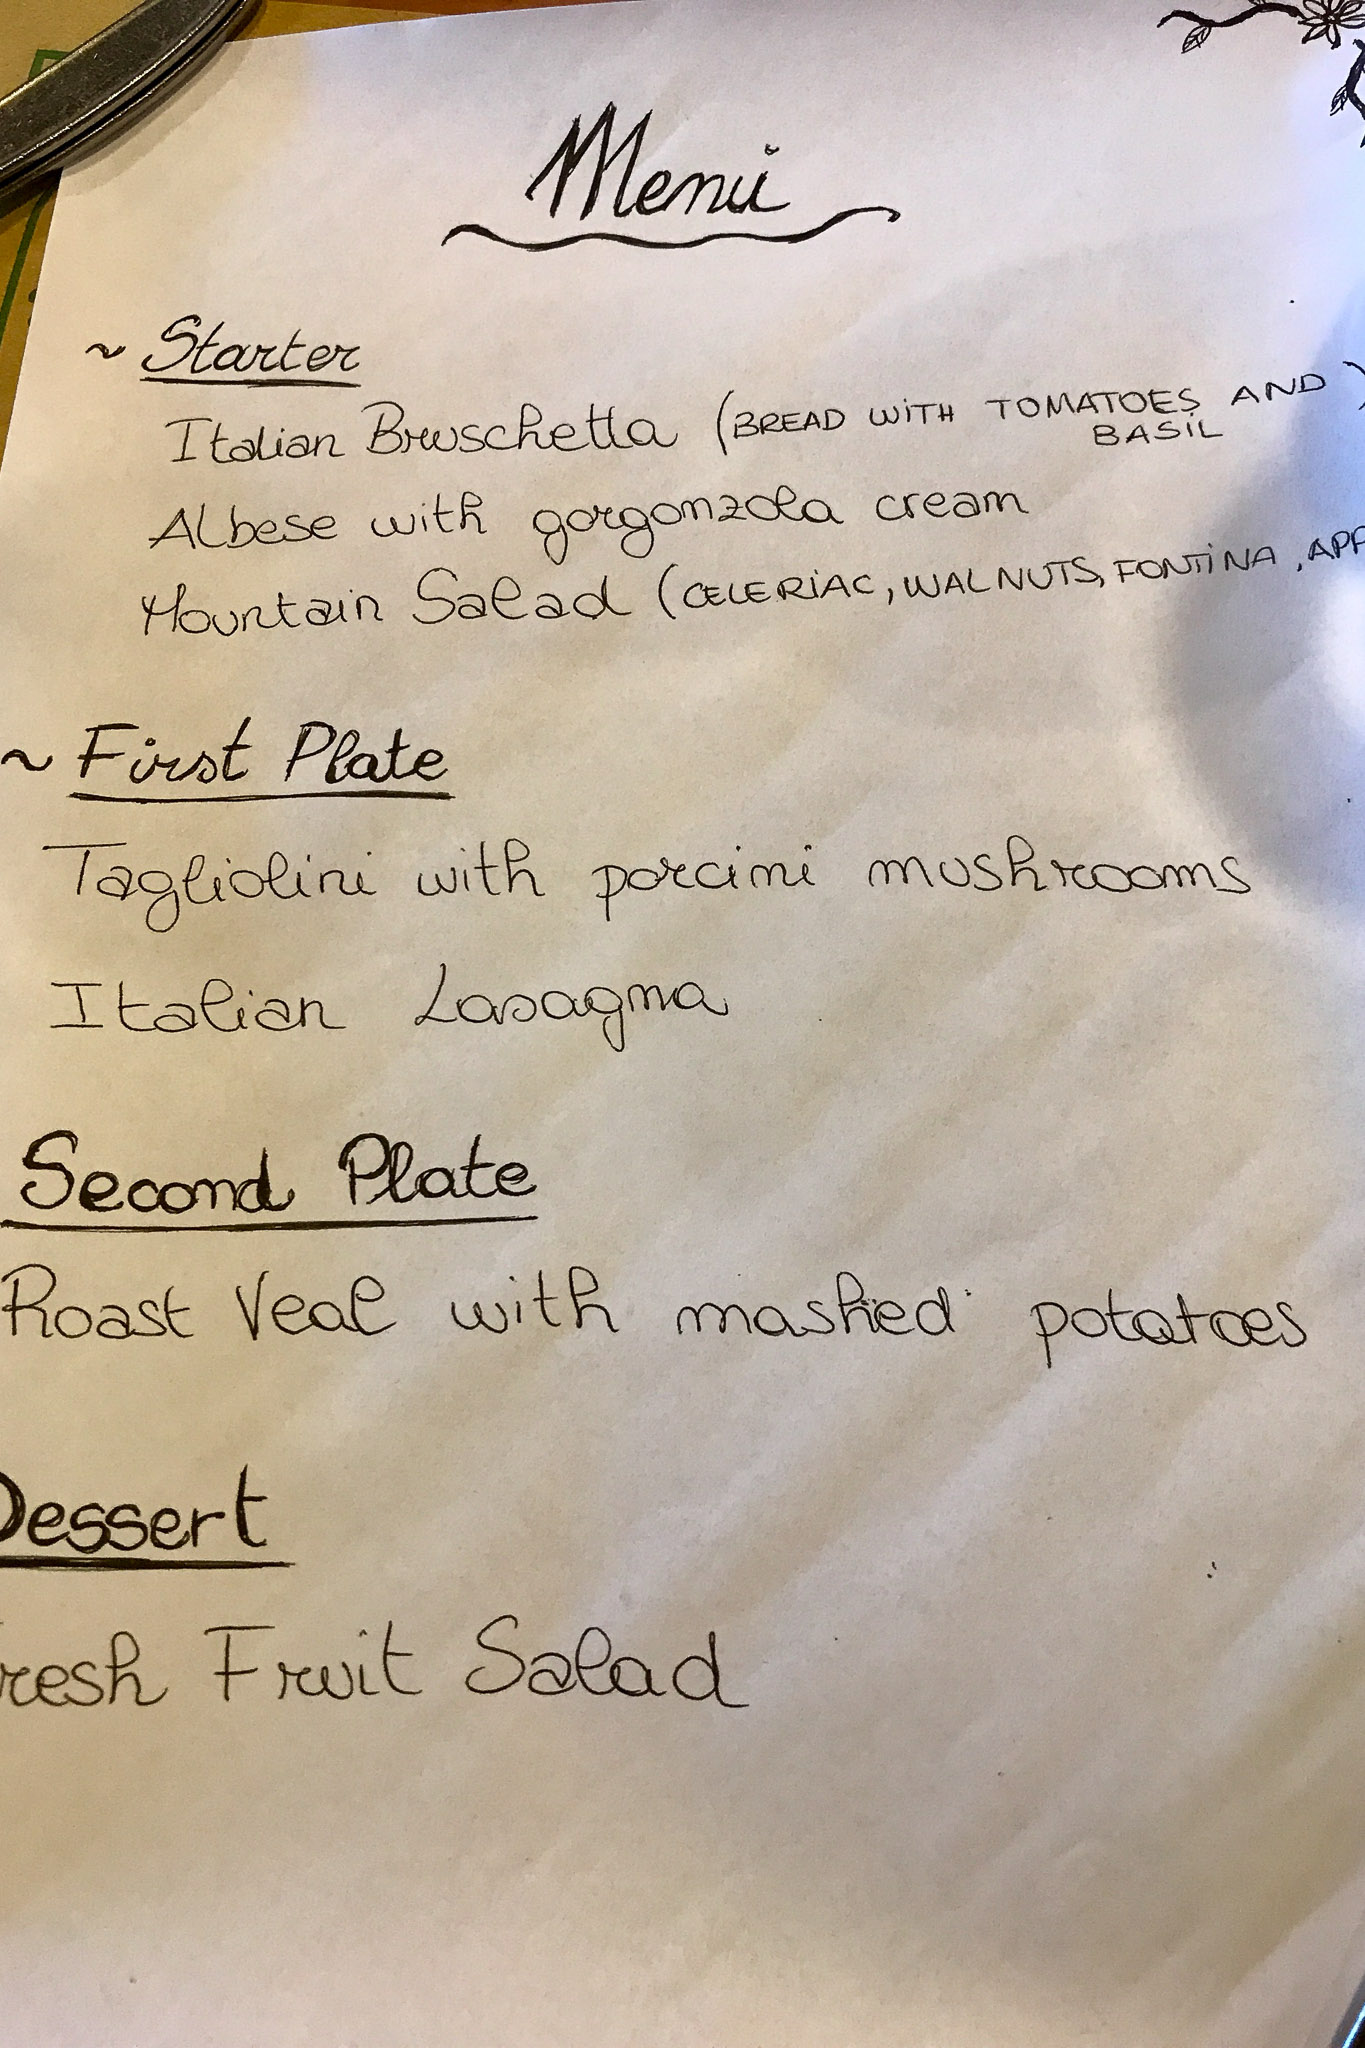 Menù
~ Starter
Italian Bruschetta (BREAD WITH TOMATOES AND BASIL)
Albese with gorgonzola cream
Mountain Salad (CELERIAC, WALNUTS, FONTINA, APP
~ First Plate
Tagliolini with porcini mushrooms
Italian Lasagna
Second Plate
Roast Veal with mashed potatoes
Dessert
resh Fruit Salad